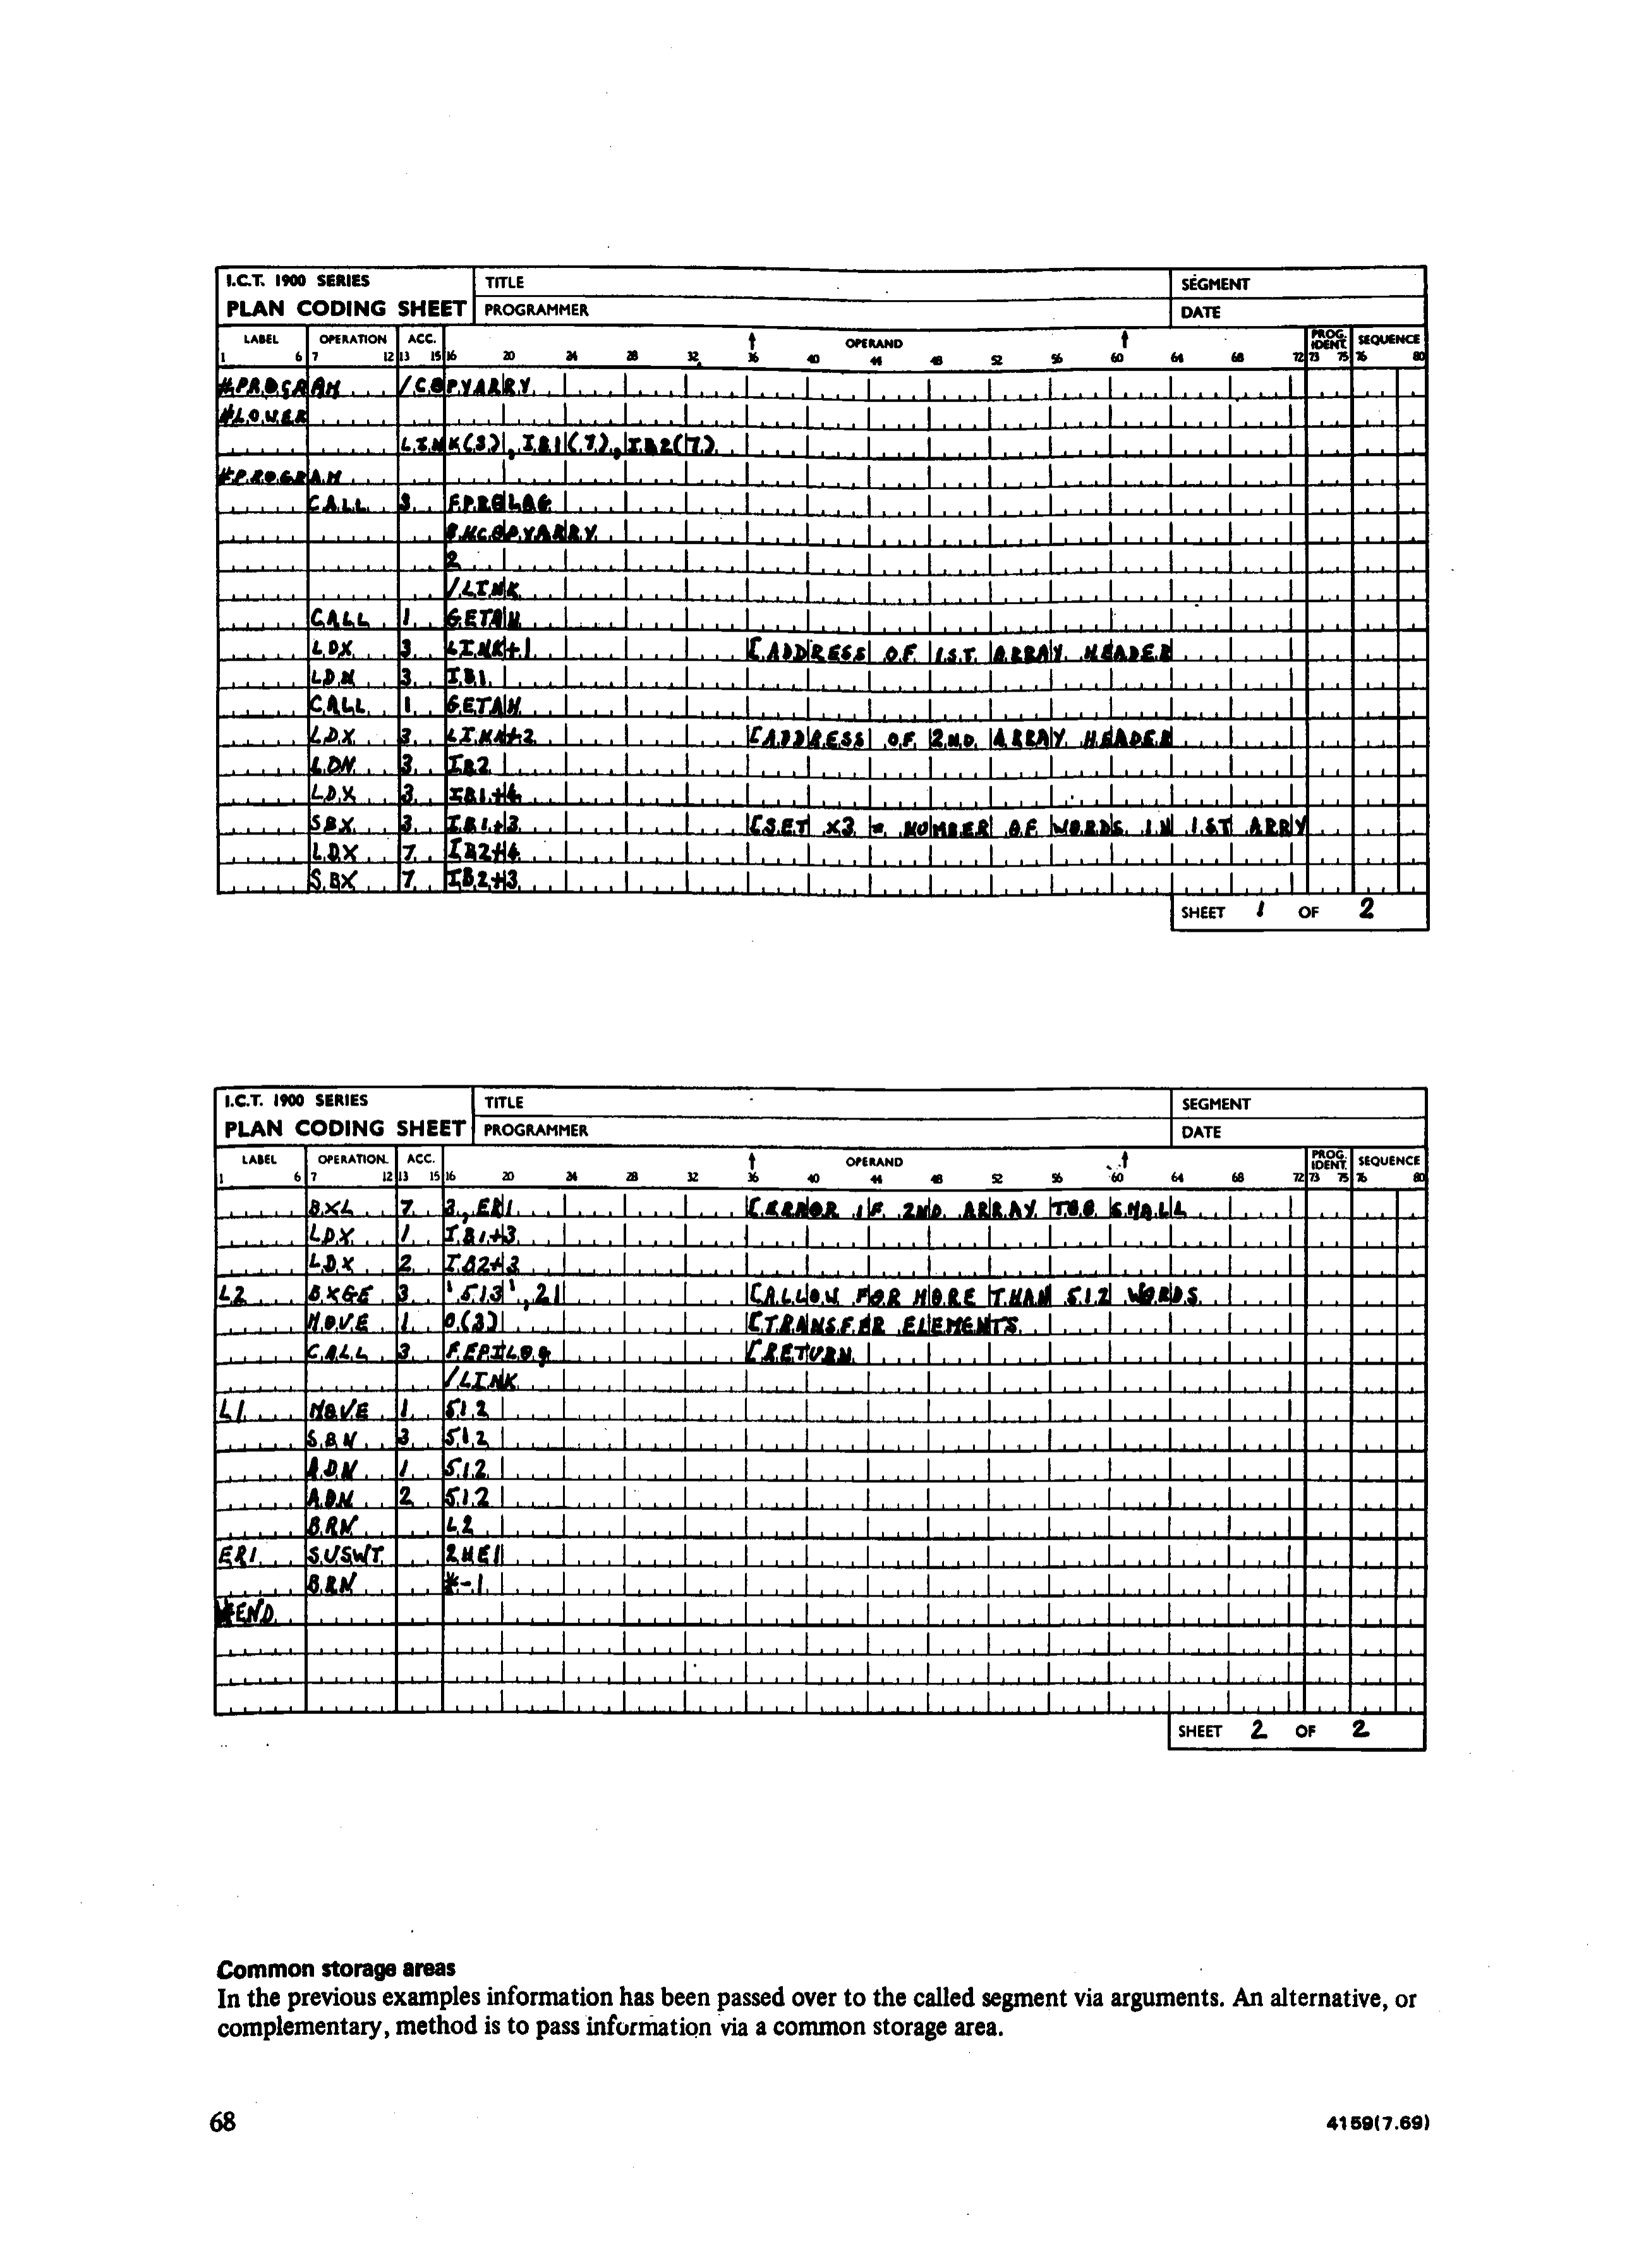 I.C.T. 1900 SERIES TITLE SEGMENT
PLAN CODING SHEET PROGRAMMER DATE
LABEL OPERATION ACC. OPERAND PROG. IDENT. SEQUENCE
1 6 7 12 13 15 16 20 24 28 32 36 40 44 48 52 56 60 64 68 72 73 75 76 80
#PROGRAM /COPYARRY
#LOWER
LINK(3),IB1(7),IB2(7)
#PROGRAM
CALL 3 FPROLOG
8HCOPYARRY
2
/LINK
CALL 1 GETAH
LDX 3 LINK+1 [ADDRESS OF 1ST ARRAY HEADER
LDN 3 IB1
CALL 1 GETAH
LDX 3 LINK+2 [ADDRESS OF 2ND ARRAY HEADER
LDN 3 IB2
LDX 3 IB1+4
SBX 3 IB1+3 [SET X3 = NUMBER OF WORDS IN 1ST ARRY
LDX 7 IB2+4
SBX 7 IB2+3
SHEET 1 OF 2
I.C.T. 1900 SERIES TITLE SEGMENT
PLAN CODING SHEET PROGRAMMER DATE
LABEL OPERATION. ACC. OPERAND PROG. IDENT. SEQUENCE
1 6 7 12 13 15 16 20 24 28 32 36 40 44 48 52 56 60 64 68 72 73 75 76 80
BXL 7 3,ER1 [ERROR IF 2ND ARRAY TOO SMALL
LDX 1 IB1+3
LDX 2 IB2+3
L2 BXGE 3 '513',21 [ALLOW FOR MORE THAN 512 WORDS
MOVE 1 0(3) [TRANSFER ELEMENTS
CALL 3 FEPILOG [RETURN
/LINK
L1 MOVE 1 512
SBN 3 512
ADN 1 512
ADN 2 512
BRN L2
ER1 SUSWT 2HE1
BRN *-1
#END
SHEET 2 OF 2
Common storage areas
In the previous examples information has been passed over to the called segment via arguments. An alternative, or
complementary, method is to pass information via a common storage area.
68 4159(7.69)